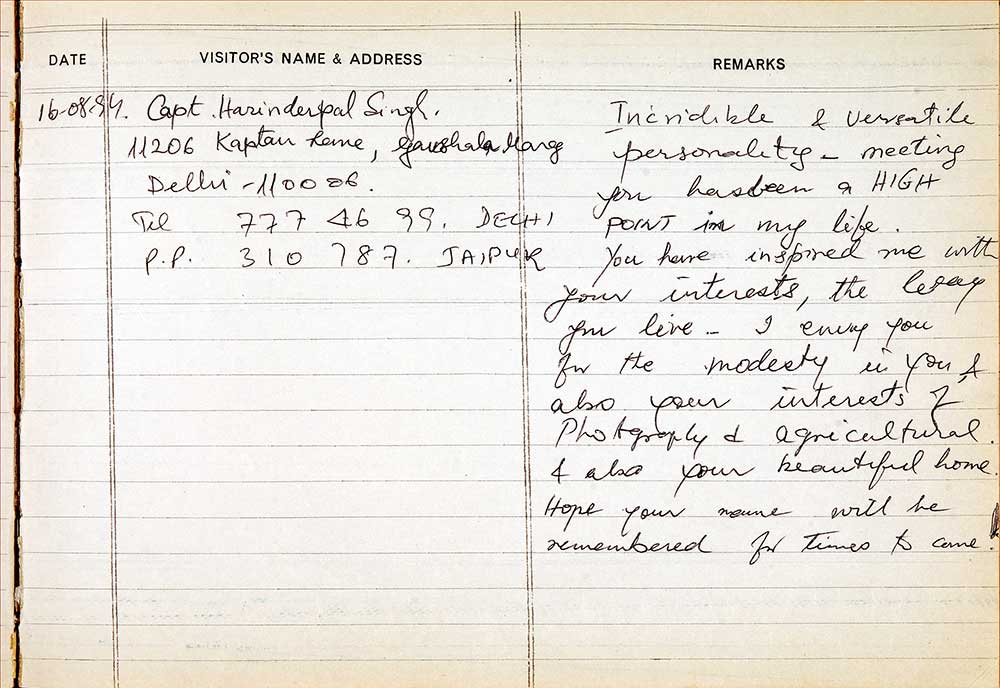 DATE VISITOR'S NAME & ADDRESS REMARKS
16-08-94. Capt. Harinderpal Singh.
11206 Kaptan Lane, Gaushala Marg
Delhi - 110006.
Tel 777 46 99. DELHI
P.P. 310 787. JAIPUR
Incridible & versatile
personality - meeting
you hasbeen a HIGH
POINT in my life.
You have inspired me with
your interests, the
you live - I envy you
for the modesty in you &
also your interests of
Photography & agricultural.
& also your beautiful home.
Hope your name will be
remembered for times to come.